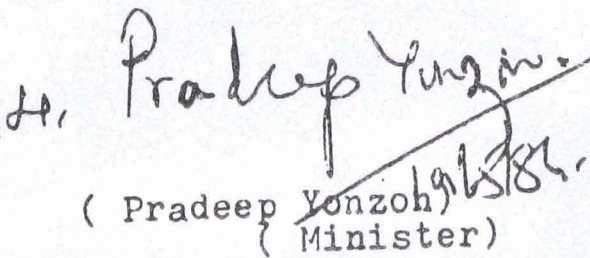 Pradeep Yonzon.
( Pradeep Yonzon)
( Minister)